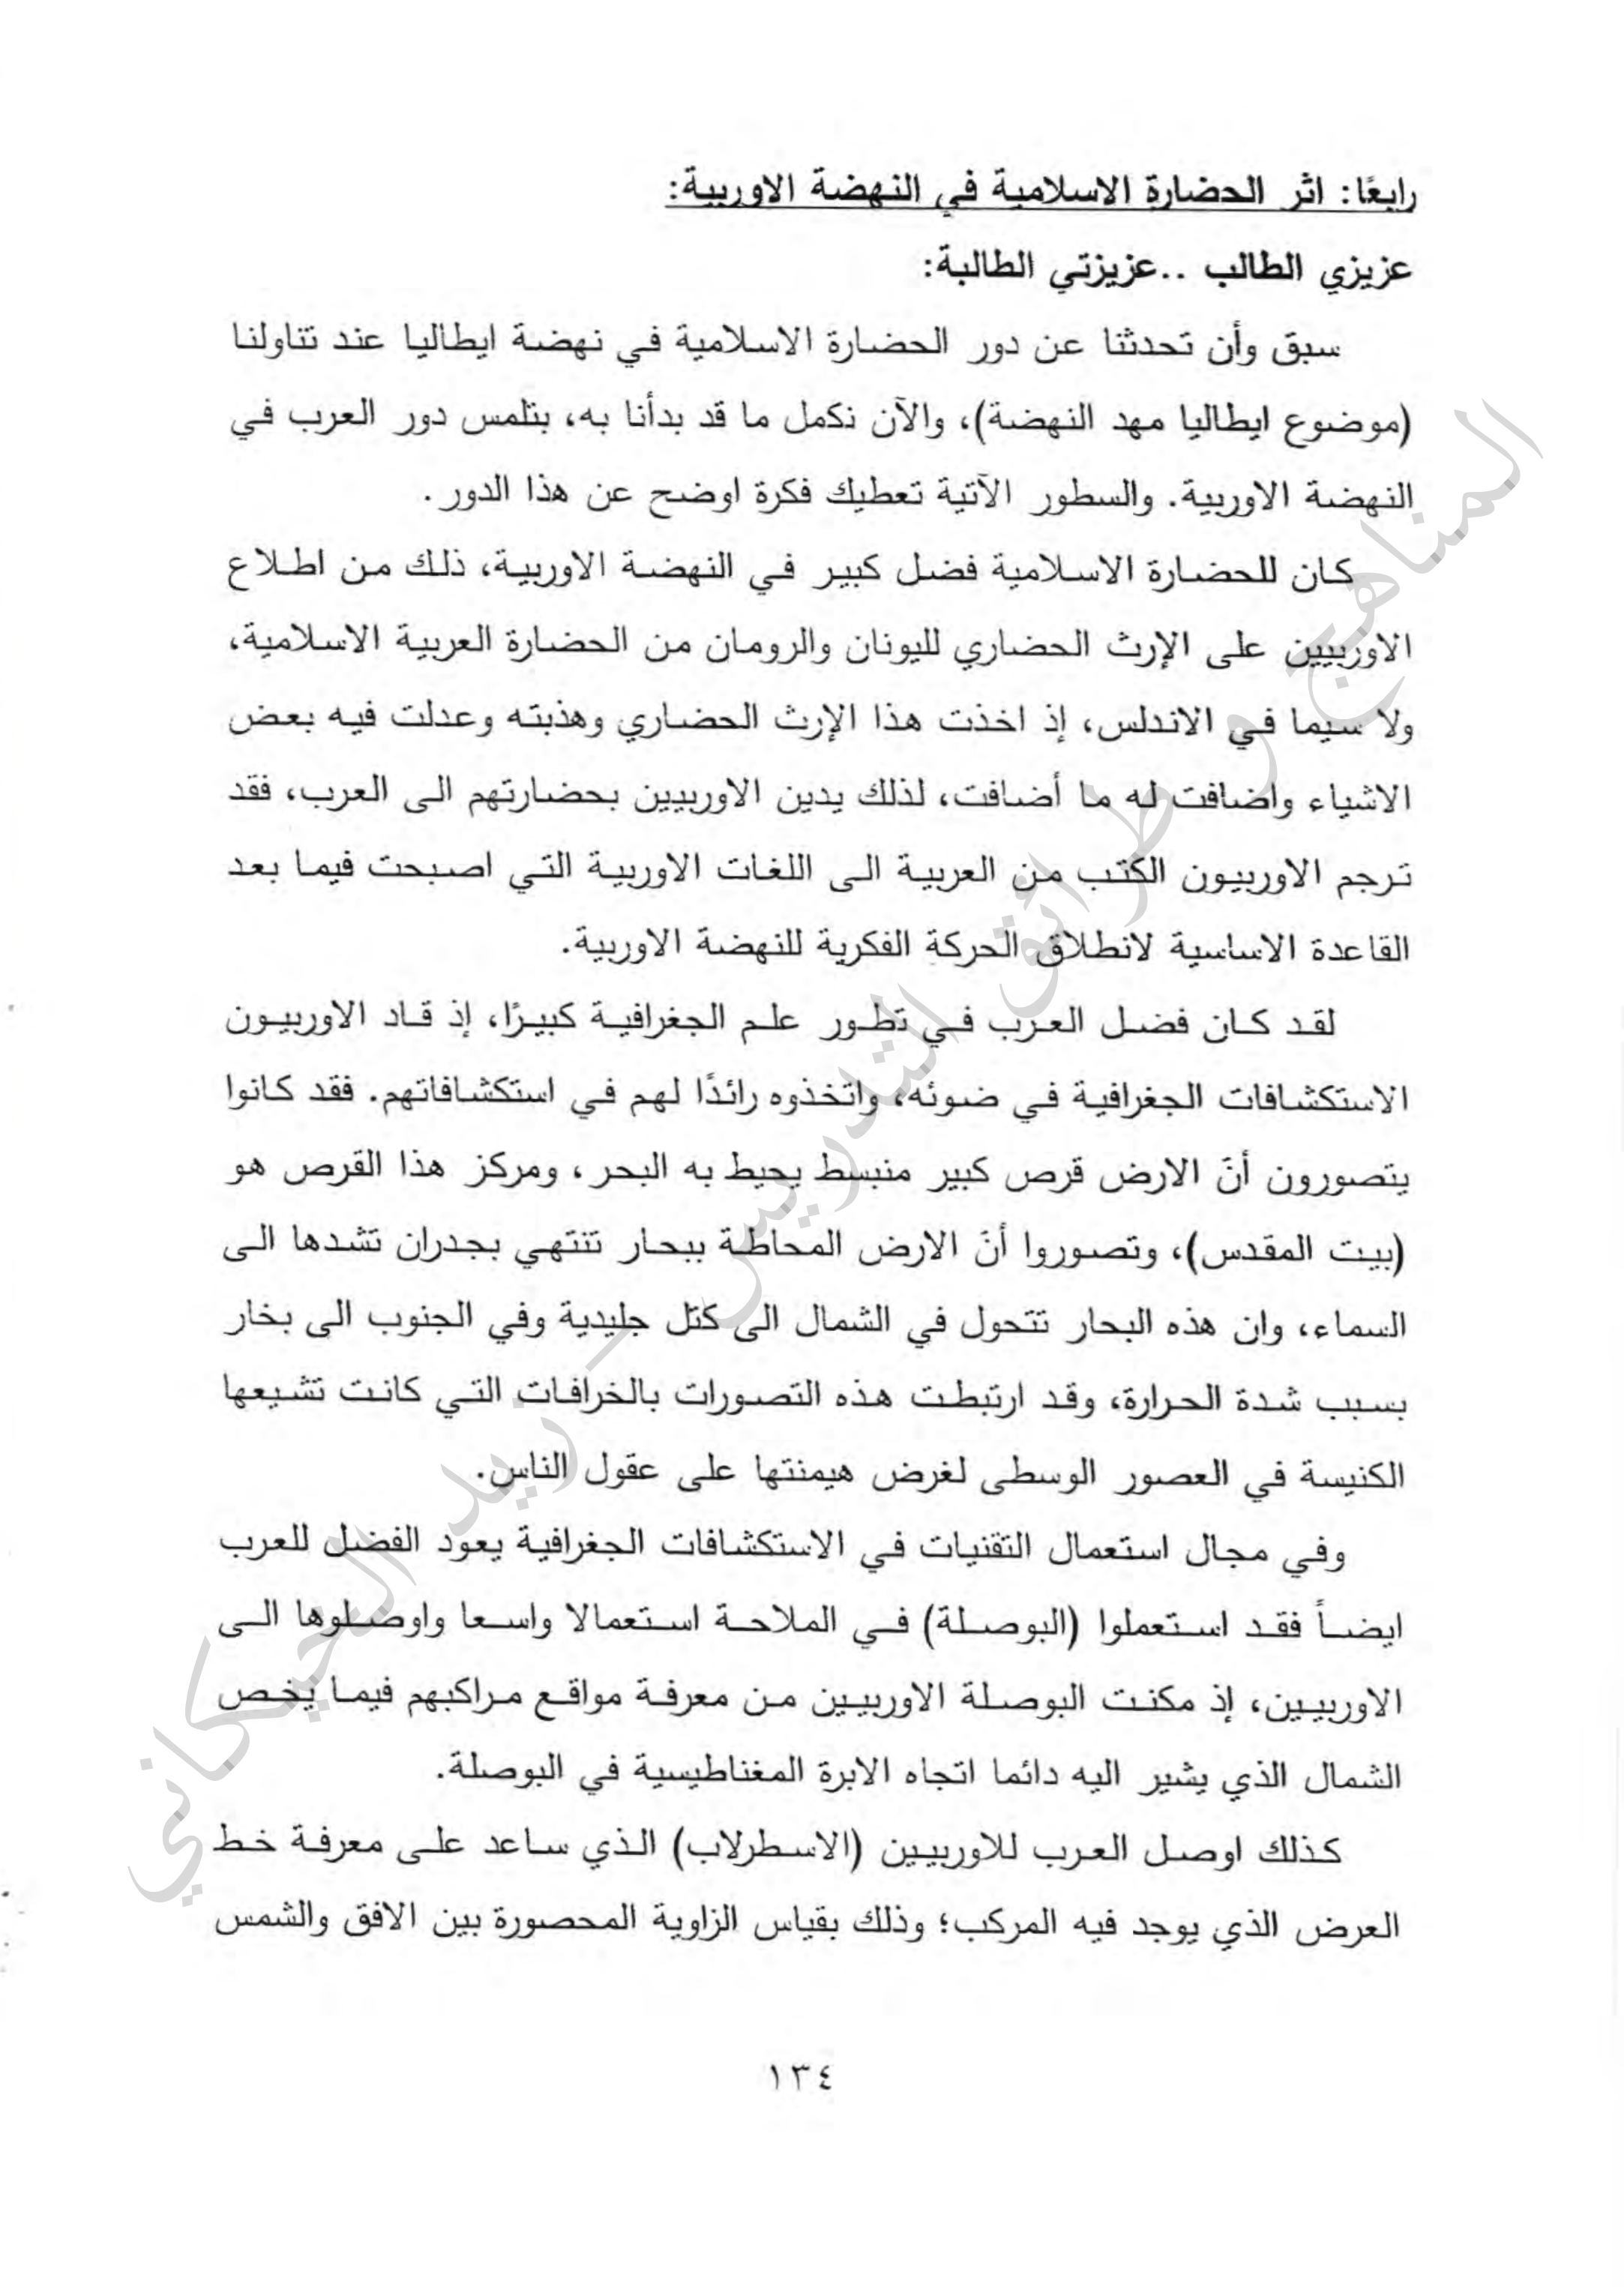 رابعًا: اثر الحضارة الاسلامية في النهضة الاوربية:
عزيزي الطالب ..عزيزتي الطالبة:
سبق وأن تحدثنا عن دور الحضارة الاسلامية في نهضة ايطاليا عند تتاولنا
(موضوع ايطاليا مهد النهضة)، والآن نكمل ما قد بدأنا به، بتلمس دور العرب في
النهضة الاوربية. والسطور الآتية تعطيك فكرة اوضح عن هذا الدور.
كان للحضارة الاسلامية فضل كبير في النهضة الاوربية، ذلك من اطلاع
الاوربيين على الإرث الحضاري لليونان والرومان من الحضارة العربية الاسلامية،
ولا سيما في الاندلس، إذ اخذت هذا الإرث الحضاري وهذبته وعدلت فيه بعض
الاشياء واضافت له ما أضافت، لذلك يدين الاوربيين بحضارتهم الى العرب، فقد
ترجم الاوربيون الكتب من العربية الى اللغات الاوربية التي اصبحت فيما بعد
القاعدة الاساسية لانطلاق الحركة الفكرية للنهضة الاوربية.
لقد كان فضل العرب في تطور علم الجغرافية كبيرًا، إذ قاد الاوربيون
الاستكشافات الجغرافية في ضوئه، واتخذوه رائدًا لهم في استكشافاتهم. فقد كانوا
يتصورون أنّ الارض قرص كبير منبسط يحيط به البحر، ومركز هذا القرص هو
(بيت المقدس)، وتصوروا أنّ الارض المحاطة ببحار تنتهي بجدران تشدها الى
السماء، وان هذه البحار تتحول في الشمال الى كتل جليدية وفي الجنوب الى بخار
بسبب شدة الحرارة، وقد ارتبطت هذه التصورات بالخرافات التي كانت تشيعها
الكنيسة في العصور الوسطى لغرض هيمنتها على عقول الناس.
وفي مجال استعمال التقنيات في الاستكشافات الجغرافية يعود الفضل للعرب
ايضاً فقد استعملوا (البوصلة) في الملاحة استعمالا واسعا واوصلوها الى
الاوربيين، إذ مكنت البوصلة الاوربيين من معرفة مواقع مراكبهم فيما يخص
الشمال الذي يشير اليه دائما اتجاه الابرة المغناطيسية في البوصلة.
كذلك اوصل العرب للاوربيين (الاسطرلاب) الذي ساعد على معرفة خط
العرض الذي يوجد فيه المركب؛ وذلك بقياس الزاوية المحصورة بين الافق والشمس
١٣٤
المناهج و طرائق التدريس – زيد الحيكاني